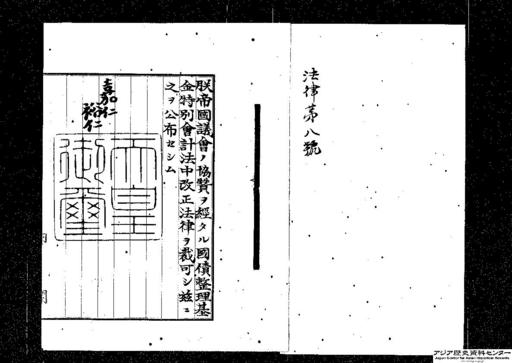 法律第八號
朕帝國議會ノ協賛ヲ經タル國債整理基
金特別會計法中改正法律ヲ裁可シ茲ニ
之ヲ公布セシム
嘉仁
裕仁
天皇
御璽
内閣
アジア歴史資料センター
Japan Center for Asian Historical Records